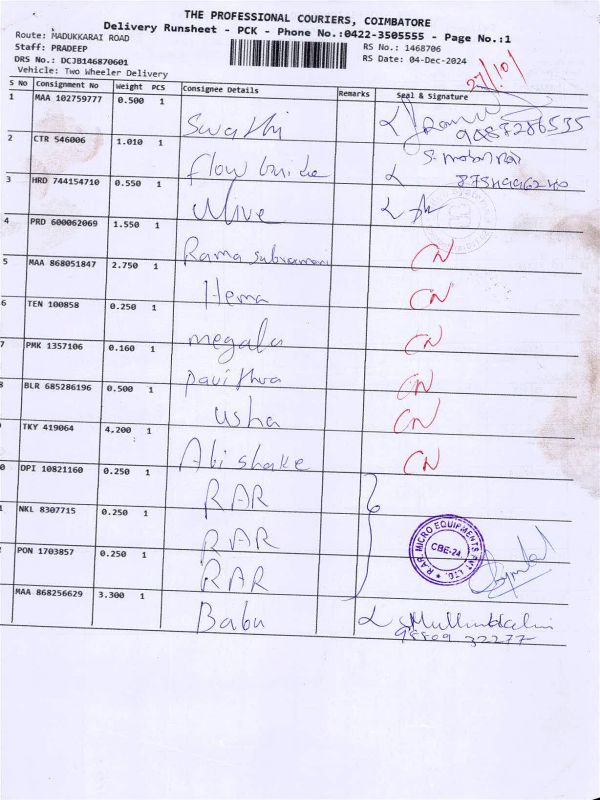 THE PROFESSIONAL COURIERS, COIMBATORE
Delivery Runsheet - PCK - Phone No.:0422-3505555 - Page No.:1
Route: MADUKKARAI ROAD
Staff: PRADEEP
RS No.: 1468706
DRS No.: DCJB146870601
RS Date: 04-Dec-2024
Vehicle: Two Wheeler Delivery
27/10/
S No Consignment No Weight PCS Consignee Details Remarks Seal & Signature
1 MAA 102759777 0.500 1 Swathi
2 CTR 546006 1.010 1 Flow
3 HRD 744154710 0.550 1
4 PRD 600062069 1.550 1 Rama CN
5 MAA 868051847 2.750 1 Hema CN
6 TEN 100858 0.250 1 megala CN
7 PMK 1357106 0.160 1 pavithra CN
8 BLR 685286196 0.500 1 usha CN
TKY 419064 4,200 1 Abi shake CN
0 DPI 10821160 0.250 1 RAR
1 NKL 8307715 0.250 1 RAR
PON 1703857 0.250 1 RAR
RAR MICRO EQUIPMENTS PVT. LTD.
CBE-24
MAA 868256629 3.300 1 Babu